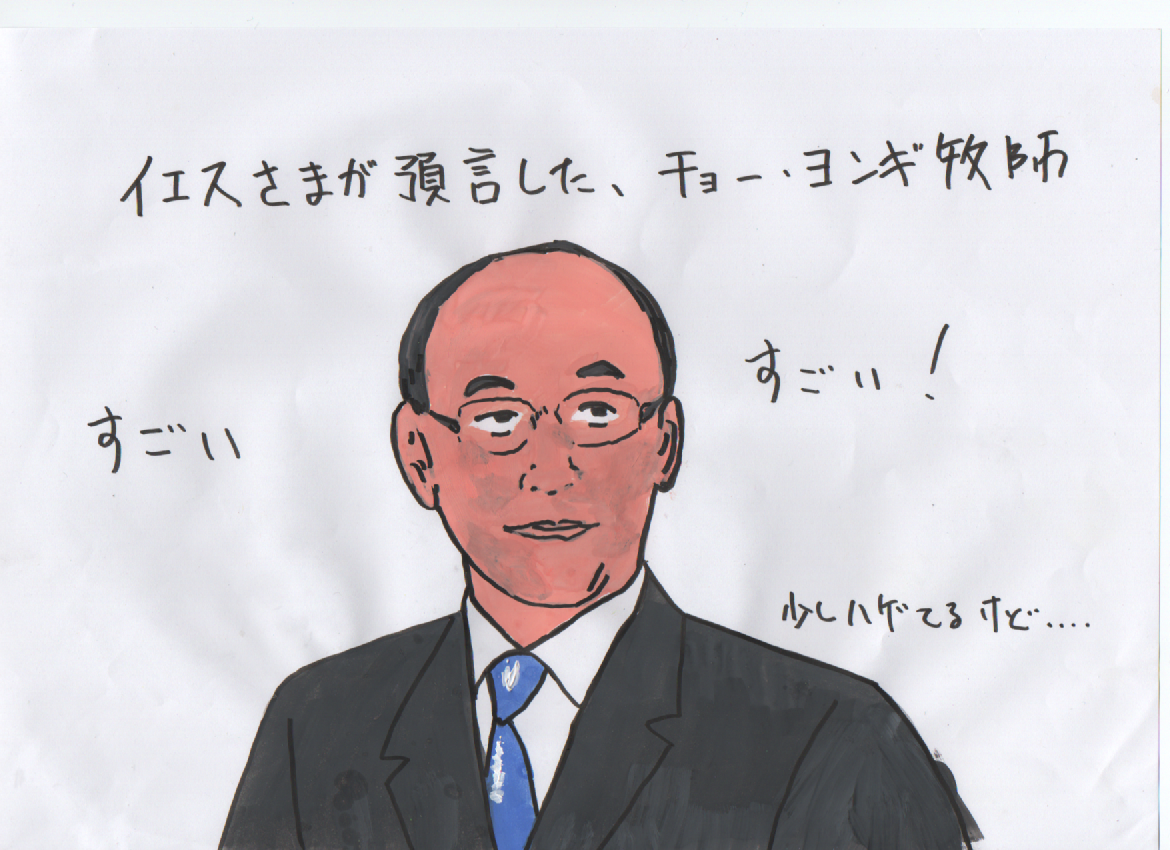 イエスさまが預言した、チョー・ヨンギ牧師
すごい!
すごい
少しハゲてるけど....